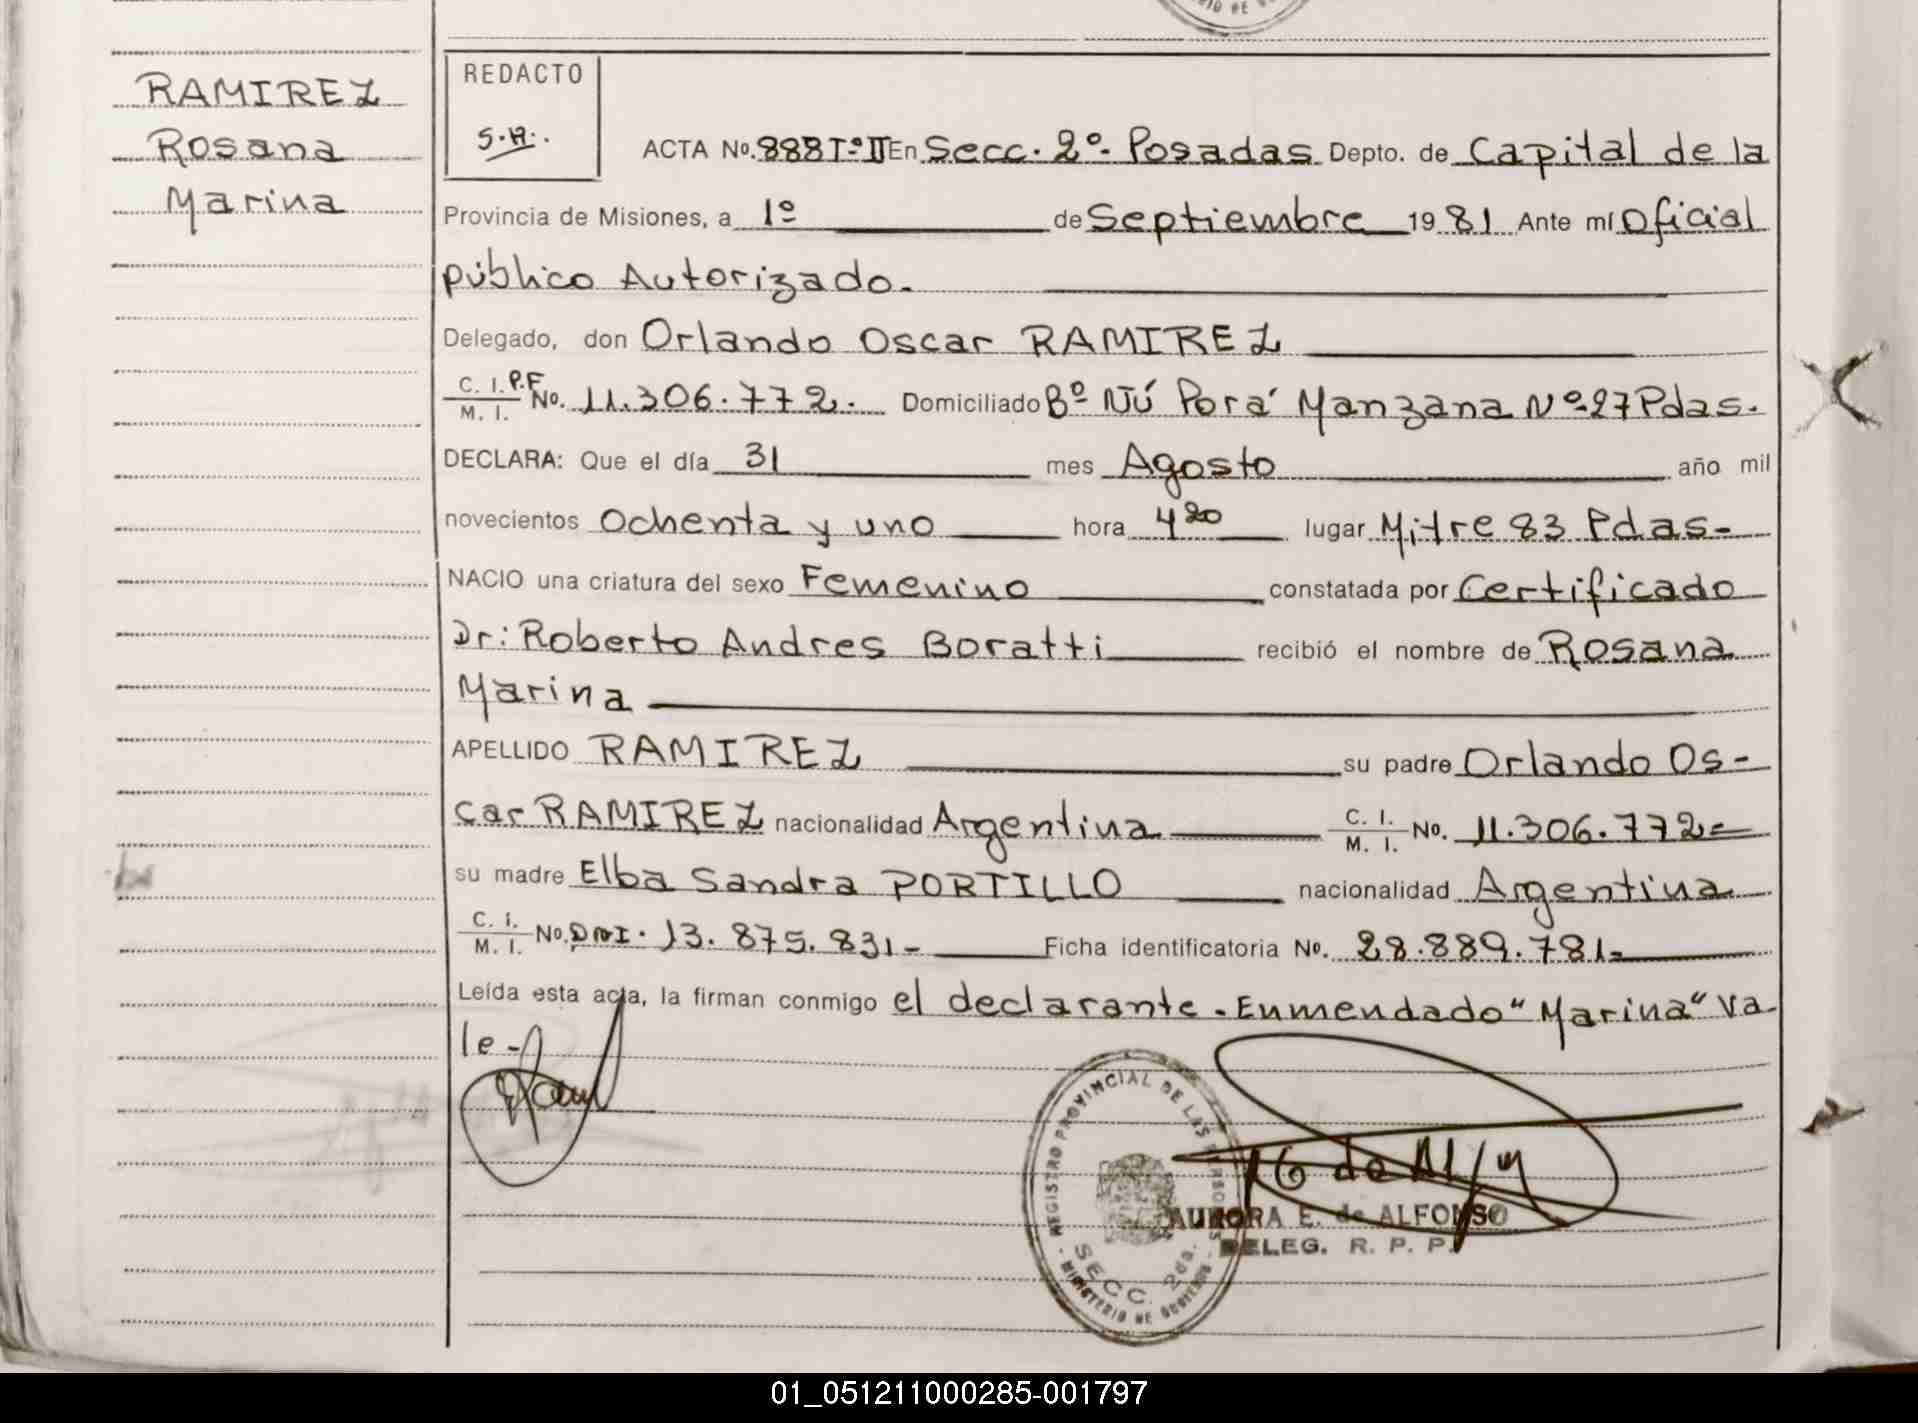 RAMIREZ
Rosana
Marina
REDACTO
S.A.
ACTA No. 888 Tº II En Secc. 2º- Posadas Depto. de Capital de la
Provincia de Misiones, a 1º de Septiembre 1981 Ante mí Oficial
público Autorizado.
Delegado, don Orlando Oscar RAMIREZ
C. I. P.F. M. I. No. 11.306.772. Domiciliado Bº Ñú Porá Manzana Nº-27 Pdas.
DECLARA: Que el día 31 mes Agosto año mil
novecientos Ochenta y uno hora 4 20 lugar Mitre 83 Pdas-
NACIO una criatura del sexo Femenino constatada por Certificado
Dr: Roberto Andres Boratti recibió el nombre de Rosana
Marina
APELLIDO RAMIREZ su padre Orlando Os-
car RAMIREZ nacionalidad Argentina C. I. M. I. No. 11.306.772=
su madre Elba Sandra PORTILLO nacionalidad Argentina
C. I. M. I. No. DNI. 13.875.831- Ficha identificatoria No. 28.889.781=
Leída esta acta, la firman conmigo el declarante. Enmendado "Marina" Va
le-
REGISTRO PROVINCIAL DE LAS PERSONAS
SECC. 2da.
MINISTERIO DE GOBIERNO
AURORA E. de ALFONSO
DELEG. R. P. P.
01_051211000285-001797